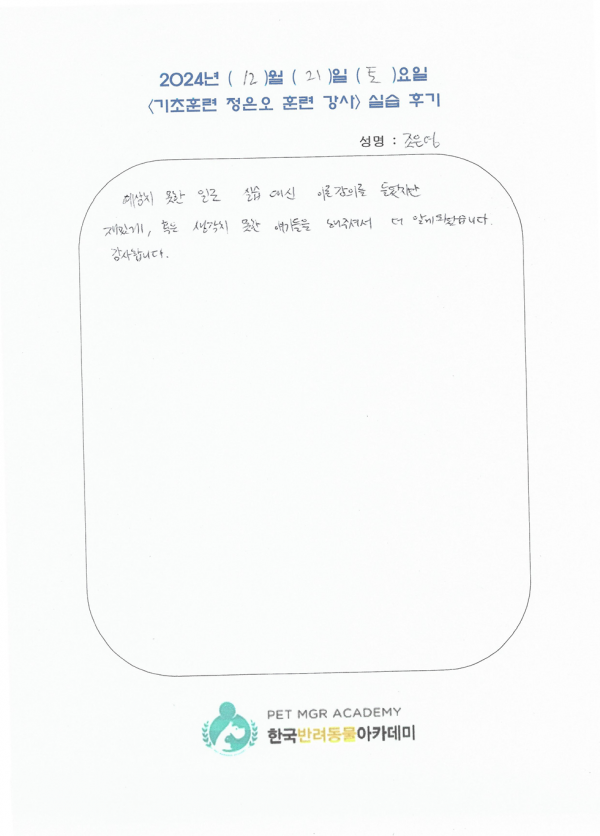 2024년 ( 12 )월 ( 21 )일 ( 토 )요일
<기초훈련 정은오 훈련 강사> 실습 후기
성명 : 조은덕
예상치 못한 일로 실습 대신 이론강의를 들었지만
재밌게, 혹은 생각치 못한 얘기들을 해주셔서 더 알게되었습니다.
감사합니다.
PET MGR ACADEMY
한국반려동물아카데미